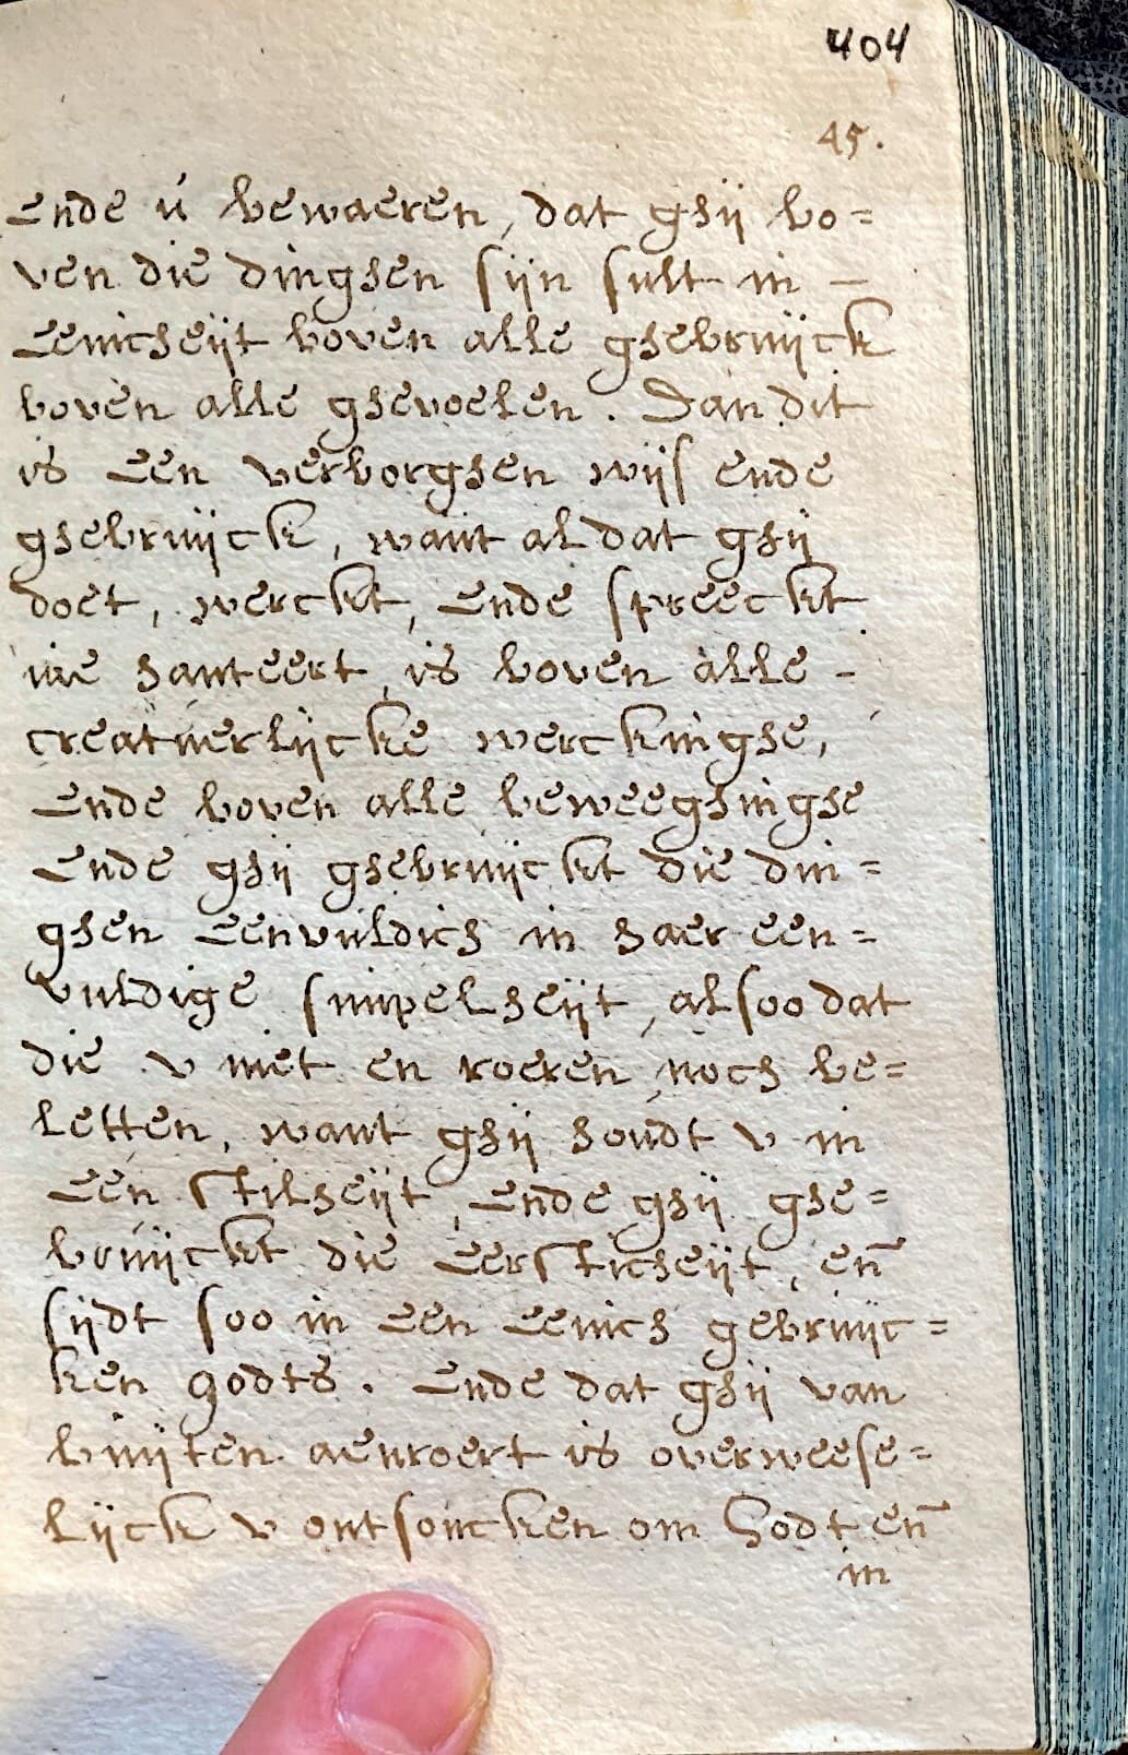 404
45.
Ende ú bewaeren, dat ghij bo=
ven die dinghen sijn sult in –
Eenicheijt boven alle ghebruijck
boven alle ghevoelen. Dan dit
is Een verborghen wijs ende
ghebruijck, want al dat ghij
doet, werckt, Ende spreeckt
hanteert, is boven alle –
creatuerlijcke werckinghe,
Ende boven alle beweeghinghe
Ende ghij ghebruijckt die din=
ghen Eenvuldich in haer een=
vuldige simpelheijt, alsoo dat
die v niet en roeren, noch be=
letten, want ghij houdt v in
Een stilheijt, Ende ghij ghe=
bruijckt die Eersticheijt, en̄
sijdt soo in Een Eenich gebruijc=
ken godts. Ende dat ghij van
buijten aenroert is overweese=
lijck v ontsoncken om Godt en̄
in